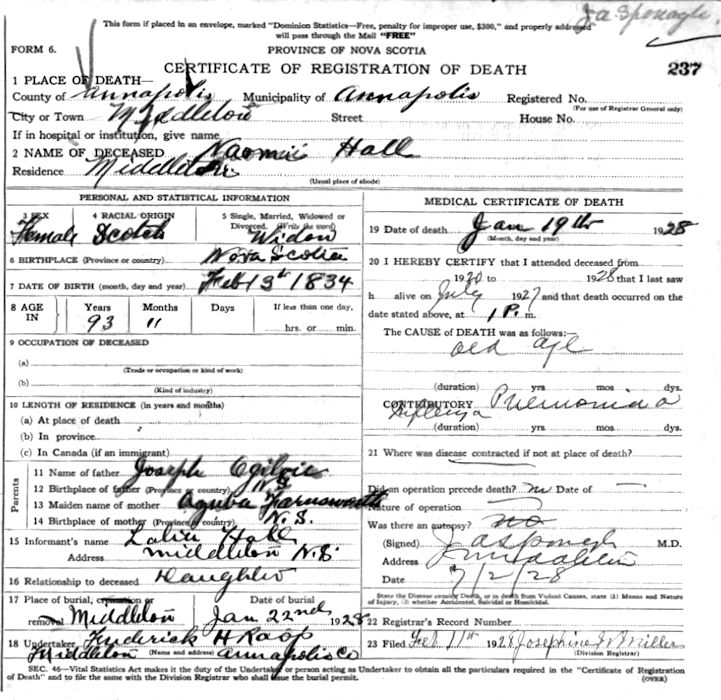 J a Sponagle
This form if placed in an envelope, marked "Dominion Statistics—Free, penalty for improper use, $300," and properly addressed
will pass through the Mail "FREE"
FORM 6.
PROVINCE OF NOVA SCOTIA
CERTIFICATE OF REGISTRATION OF DEATH
237
1 PLACE OF DEATH—
County of Annapolis Municipality of Annapolis Registered No.
(For use of Registrar General only)
City or Town Middleton Street House No.
If in hospital or institution, give name
2 NAME OF DECEASED Naomi Hall
Residence Middleton
(Usual place of abode)
PERSONAL AND STATISTICAL INFORMATION
3 SEX 4 RACIAL ORIGIN 5 Single, Married, Widowed or
Divorced. (Write the word)
Female Scotch Widow
6 BIRTHPLACE (Province or country) Nova Scotia
7 DATE OF BIRTH (month, day and year) Feb 13th 1834
8 AGE IN Years Months Days If less than one day,
93 11 hrs. or min.
9 OCCUPATION OF DECEASED
(a)
(Trade or occupation or kind of work)
(b)
(Kind of industry)
10 LENGTH OF RESIDENCE (in years and months)
(a) At place of death
(b) In province
(c) In Canada (if an immigrant)
Parents
11 Name of father Joseph Ogilvie
12 Birthplace of father (Province or country) N.S.
13 Maiden name of mother Farnsworth
14 Birthplace of mother (Province or country) N. S.
15 Informant's name Hall
Address Middleton N.S.
16 Relationship to deceased Daughter
17 Place of burial, cremation or Date of burial
removal Middleton Jan 22nd 1928
18 Undertaker Frederick H Roop
Middleton (Name and address) Annapolis Co
MEDICAL CERTIFICATE OF DEATH
19 Date of death Jan 19th 1928
(Month, day and year)
20 I HEREBY CERTIFY that I attended deceased from
1920 to 1928 that I last saw
h alive on July 1927 and that death occurred on the
date stated above, at 1 P. m.
The CAUSE of DEATH was as follows:—
old age
(duration) yrs mos dys.
CONTRIBUTORY Pneumonia
(duration) yrs. mos dys.
21 Where was disease contracted if not at place of death?
Did an operation precede death? no Date of
Nature of operation
Was there an autopsy? no
(Signed) J A Sponagle M.D.
Address Middleton
Date 7/2/28
State the Disease causing Death, or in death from Violent Causes, state (1) Means and Nature
of Injury, (2) whether Accidental, Suicidal or Homicidal.
22 Registrar's Record Number
23 Filed Feb 11th 1928 Josephine Miller
(Division Registrar)
SEC. 46—Vital Statistics Act makes it the duty of the Undertaker or person acting as Undertaker to obtain all the particulars required in the "Certificate of Registration
of Death" and to file the same with the Division Registrar who shall issue the burial permit.
(OVER)